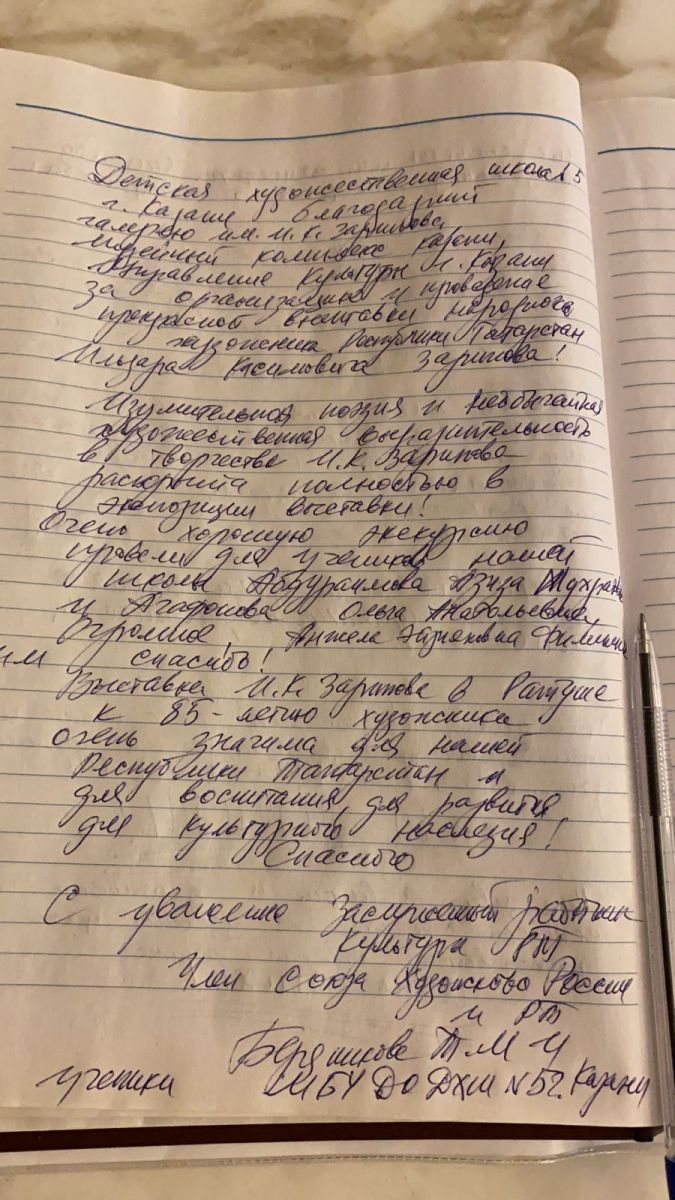 Детская художественная школа №5
г. Казани благодарит
галерею им. И.К. Зарипова,
музейный комплекс Казани,
Управление культуры г. Казани
за организацию и проведение
прекрасной выставки народного
художника Республики Татарстан
Ильзара Касимовича Зарипова!
Изумительная поэзия и необычайная
художественная выразительность
в творчестве И.К. Зарипова
раскрыта полностью в
экспозиции выставки!
Очень хорошую экскурсию
провели для учеников нашей
школы Абдураимова Азиза
и Агафонова Ольга Анатольевна,
Огромное, Анжела
им спасибо!
Выставка И.К. Зарипова в Ратуше
к 85-летию художника
очень значима для нашей
Республики Татарстан и
для воспитания, для развития
для культурного наследия!
Спасибо
С уважение Заслуженный работник
культура РТ
Член Союза Художников России
и РТ
Т.М и
ученики МБУ ДО ДХШ №5 г. Казани